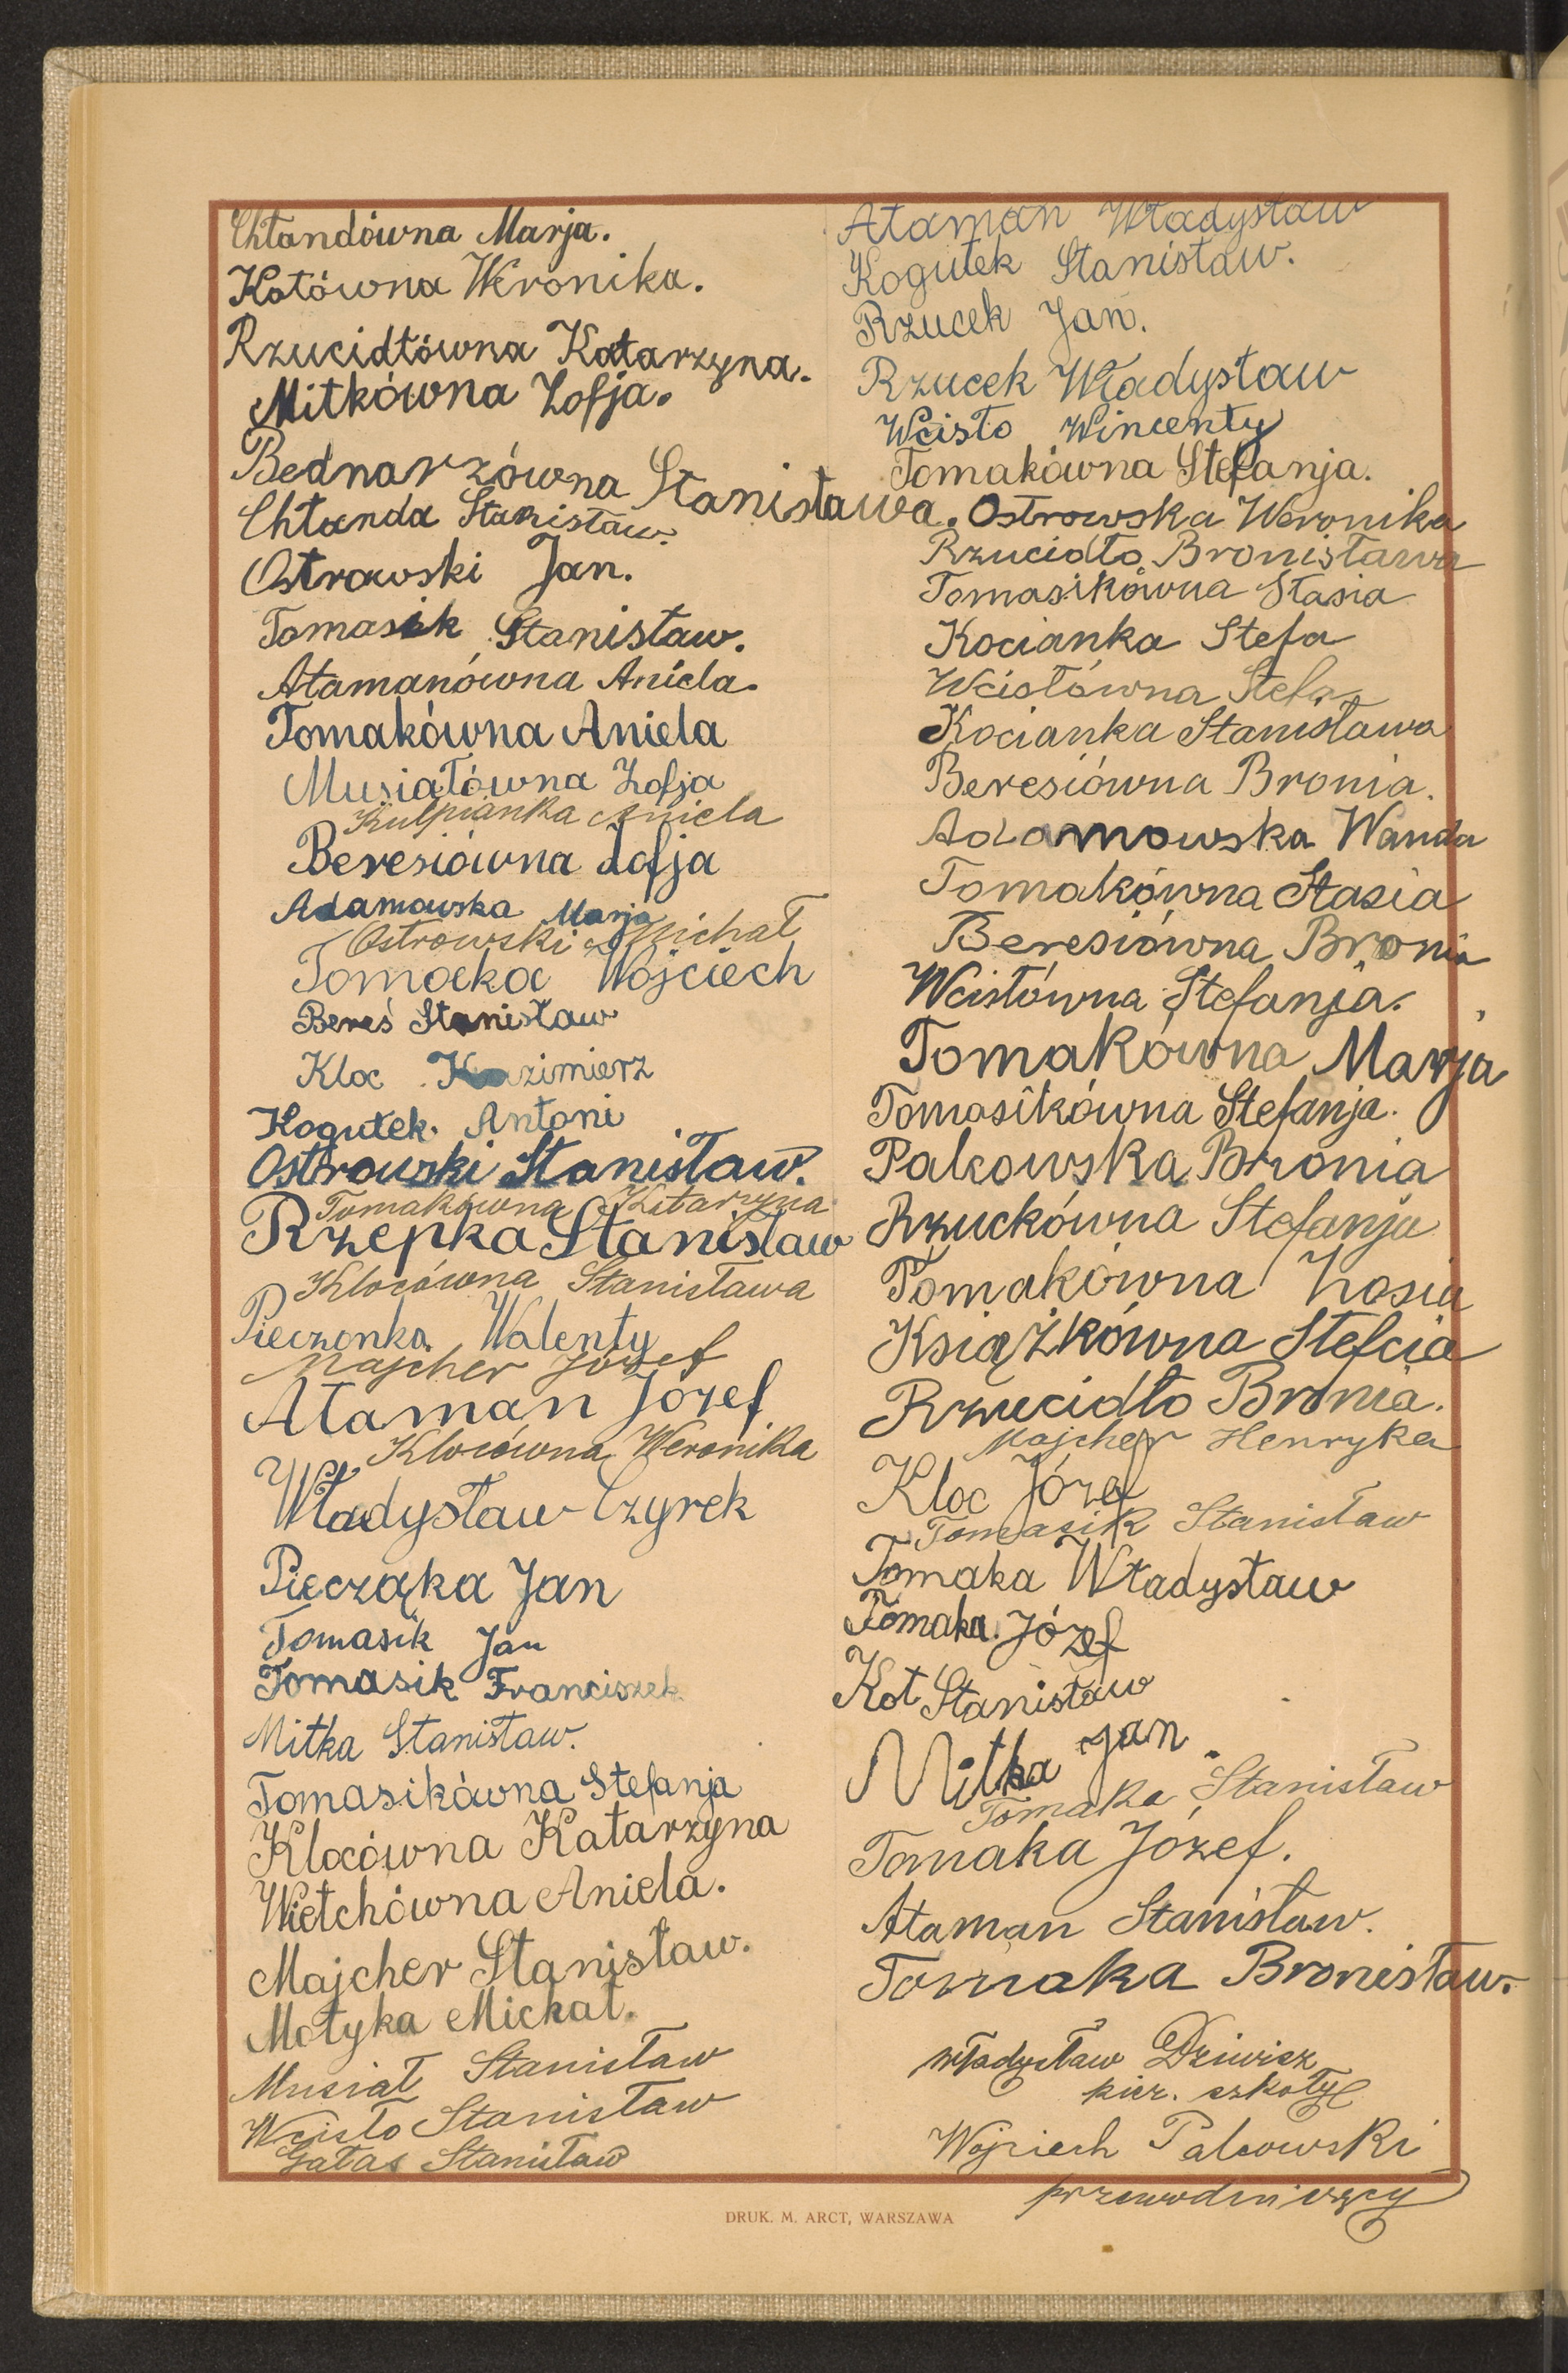 Chłandówna Marja.
Kotówna Weronika.
Rzucidłówna Katarzyna.
Mitkówna Zofja.
Bednarzówna Stanisława.
Chłanda Stanisław.
Ostrowski Jan.
Tomasik Stanisław.
Atamanówna Aniela.
Tomakówna Aniela
Musiałówna Zofja
Kulpianka Aniela
Beresiówna Zofja
Adamowska Marja
Ostrowski Michał
Tomacka Wojciech
Bereś Stanisław
Kloc Kazimierz
Kogutek Antoni
Ostrowski Stanisław.
Tomakówna Katarzyna
Rzepka Stanisław
Klocówna Stanisława
Pieczonka Walenty
Majcher Józef
Ataman Józef
Klocówna Weronika
Władysław Czyrek
Piecząka Jan
Tomasik Jan
Tomasik Franciszek
Mitka Stanisław.
Tomasikówna Stefanja
Klocówna Katarzyna
Wietchówna Aniela.
Majcher Stanisław.
Motyka Michał.
Musiał Stanisław
Wcisło Stanisław
Gałas Stanisław
Ataman Władysław
Kogutek Stanisław.
Rzucek Jan.
Rzucek Władysław
Wcisło Wincenty
Tomakówna Stefanja.
Ostrowska Weronika
Rzucidło Bronisława
Tomasikówna Stasia
Kocianka Stefa
Wcisłówna Stefa
Kocianka Stanisława
Beresiówna Bronia.
Adamowska Wanda
Tomakówna Stasia
Beresiówna Bronia
Wcisłówna Stefanja.
Tomakówna Marja
Tomasikówna Stefanja.
Palcowska Bronia
Rzuckówna Stefanja
Tomakówna Zosia
Książkówna Stefcia
Rzucidło Bronia.
Majcher Henryka
Kloc Józef
Tomasik Stanisław
Tomaka Władysław
Tomaka Józef
Kot Stanisław
Mitka Jan
Tomaka Stanisław
Tomaka Józef.
Ataman Stanisław.
Tomaka Bronisław.
Władysław Dziwisz
kier. szkoły
Wojciech Palcowski
przewodniczący
DRUK. M. ARCT, WARSZAWA